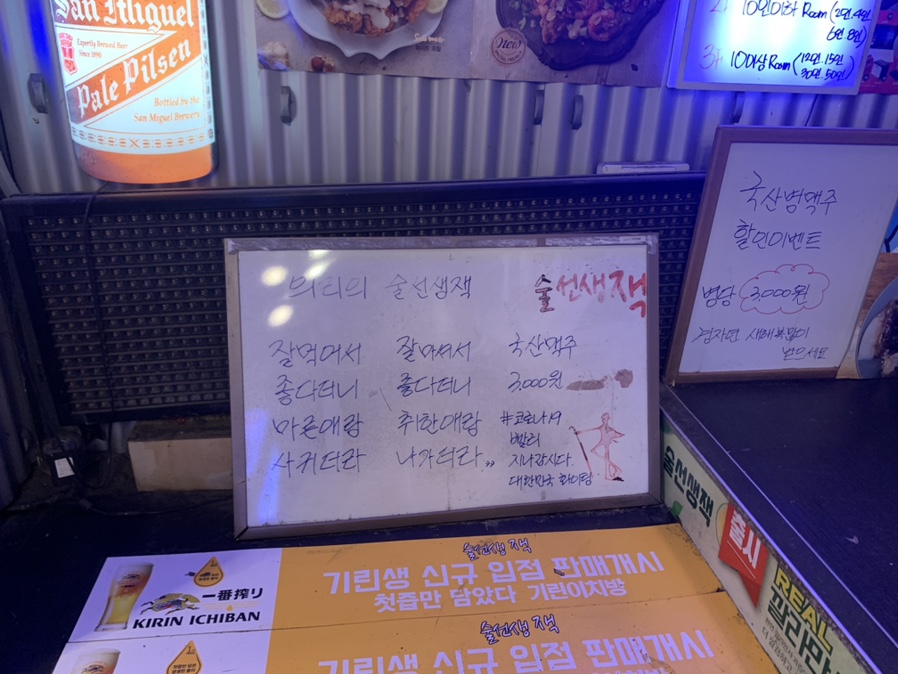 San Miguel
Expertly Brewed Beer
Since 1890
Pale Pilsen
Bottled by the
San Miguel Brewery
New
10인이하 Room (2인.4인
6인 8인)
10이상 Room (12인.15인
30인.50인)
의리의 술선생잭
술선생잭
잘먹어서 잘마셔서 국산맥주
좋다더니 좋다더니 3,000원
마른애랑 취한애랑 #코로나19
빨리
사귀더라 나가더라,, 지나갑시다.
대한민국 화이팅
국산병맥주
할인이벤트
병당 3,000원
경자년 새해복많이
받으세요
술선생잭
一番搾り
KIRIN ICHIBAN
기린생 신규 입점 판매개시
첫즙만 담았다 기린이치방
술선생잭
기린생 신규 입점 판매개시
술선생잭
출시
REAL